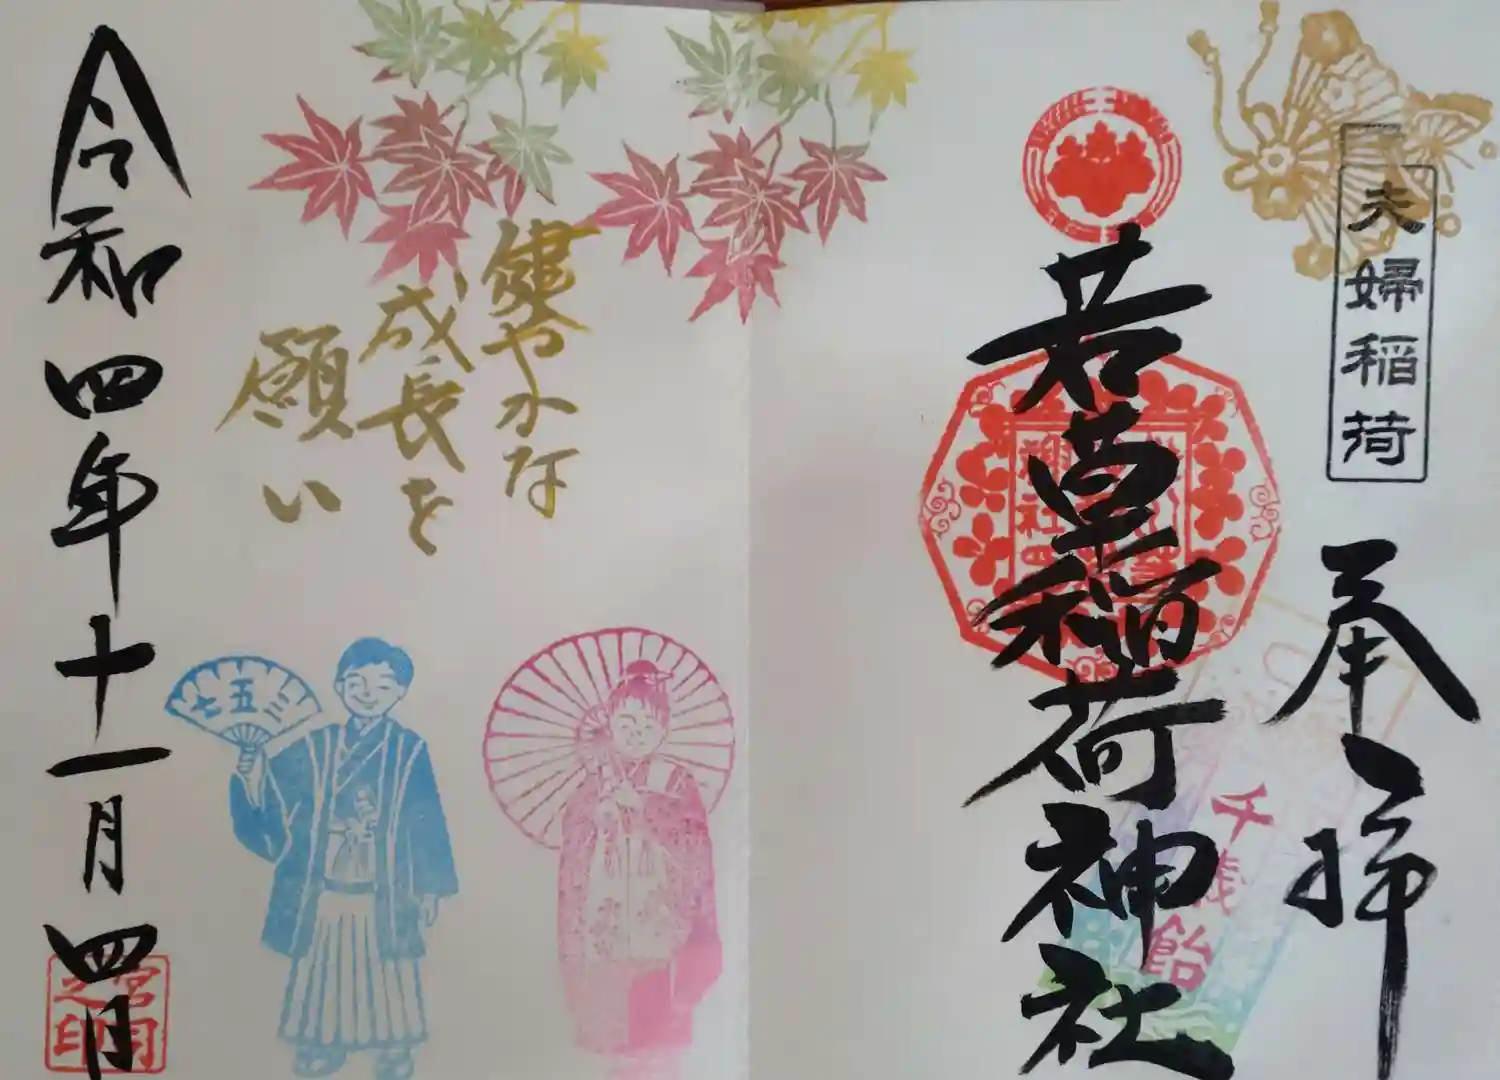 夫婦稲荷
奉拝
若草稲荷神社
千歳飴
健やかな
成長を
願い
七五三
令和四年十一月四日
宮司
之印